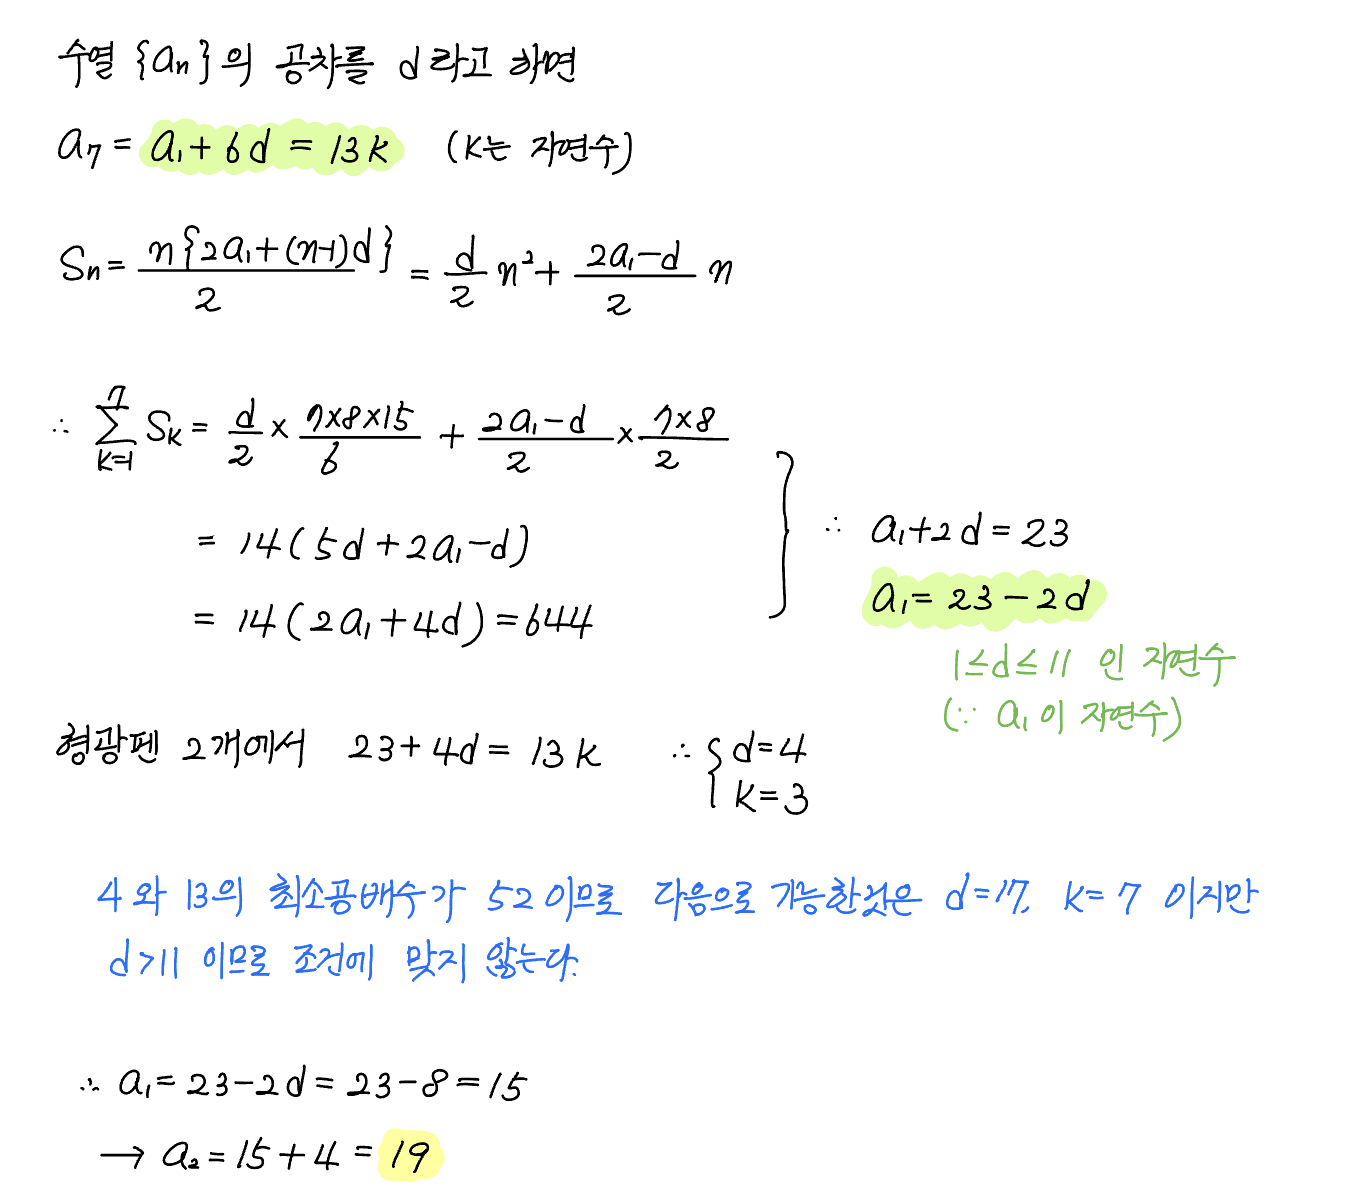 수열 {aₙ}의 공차를 d라고 하면
a₇ = a₁ + 6d = 13k (k는 자연수)
Sₙ = n{2a₁+(n-1)d}/2 = d/2 n² + (2a₁-d)/2 n
∴ ∑_{k=1}^{7} Sₖ = d/2 × (7×8×15)/6 + (2a₁-d)/2 × (7×8)/2
= 14(5d+2a₁-d)
= 14(2a₁+4d) = 644
∴ a₁+2d = 23
a₁ = 23-2d
1≤d≤11 인 자연수
(∵ a₁이 자연수)
형광펜 2개에서 23+4d = 13k ∴ { d=4
k=3
4와 13의 최소공배수가 52이므로 다음으로 가능한것은 d=17, k=7 이지만
d>11 이므로 조건에 맞지 않는다.
∴ a₁ = 23-2d = 23-8 = 15
→ a₂ = 15+4 = 19